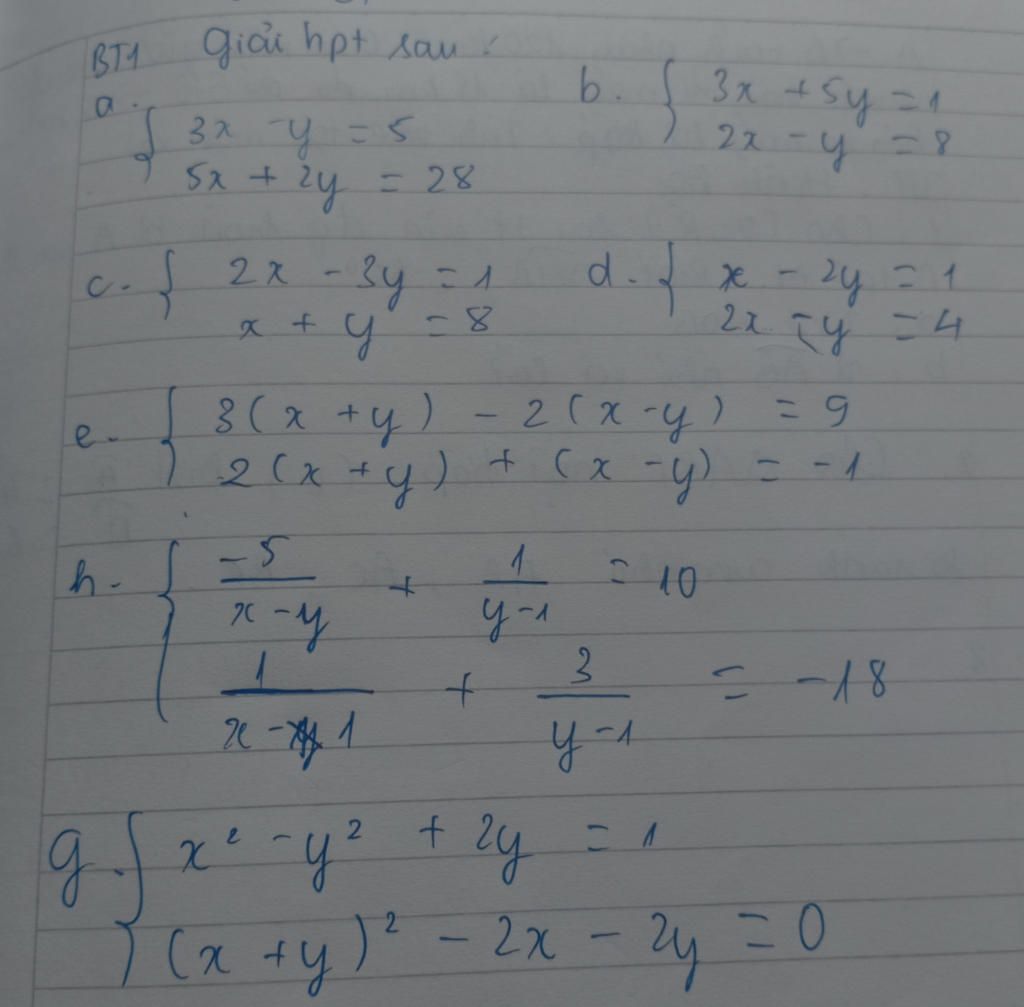 BT1 Giải hpt sau:
a. { 3x - y = 5
5x + 2y = 28
b. { 3x + 5y = 1
2x - y = 8
c. { 2x - 3y = 1
x + y = 8
d. { x - 2y = 1
2x - y = 4
e. { 3(x + y) - 2(x - y) = 9
2(x + y) + (x - y) = -1
h. { -5/(x - y) + 1/(y - 1) = 10
1/(x - 1) + 3/(y - 1) = -18
g. { x² - y² + 2y = 1
(x + y)² - 2x - 2y = 0